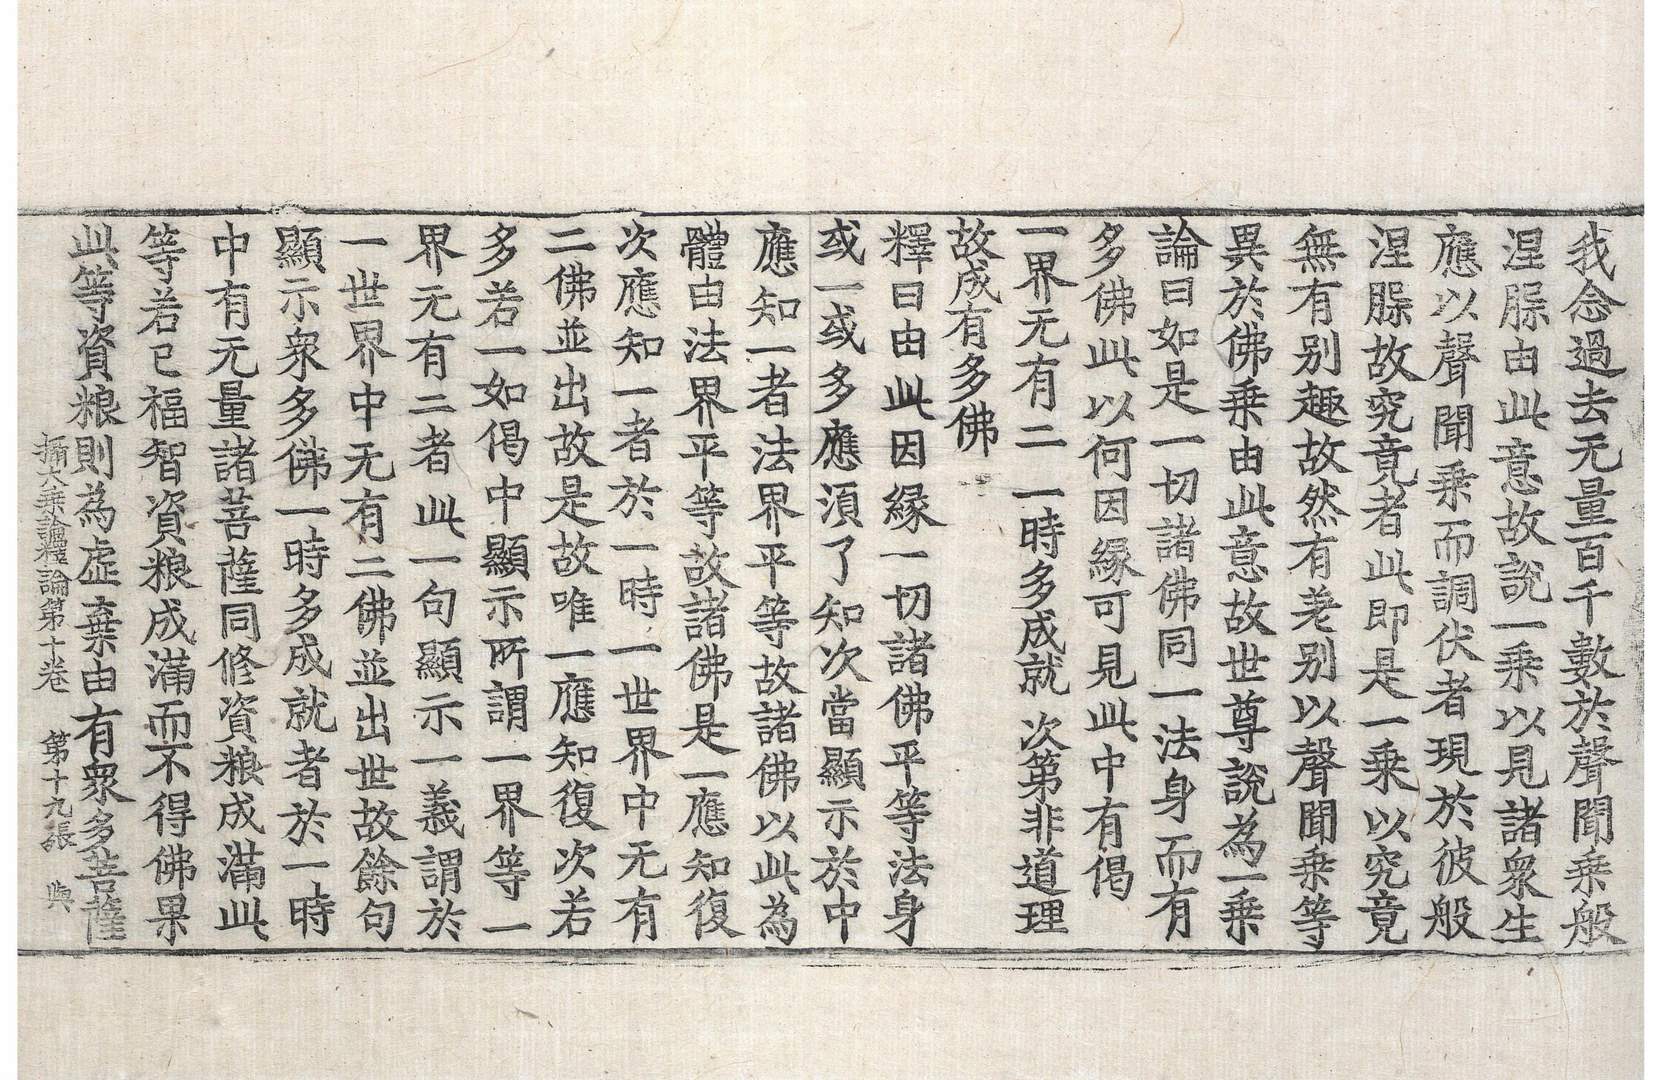 我念過去无量百千數於聲聞乗般
涅脲由此意故說一乗以見諸衆生
應以聲聞乗而調伏者現於彼般
涅脲故究竟者此即是一乗以究竟
無有别趣故然有差别以聲聞乗等
異於佛乗由此意故世尊說為一乗
論曰如是一切諸佛同一法身而有
多佛此以何因緣可見此中有偈
一界无有二 一時多成就 次第非道理
故成有多佛
釋曰由此因緣一切諸佛平等法身
或一或多應湏了知次當顯示於中
應知一者法界平等故諸佛以此為
體由法界平等故諸佛是一應知復
次應知一者於一時一世界中无有
二佛並出故是故唯一應知復次若
多若一如偈中顯示所謂一界等一
界无有二者此一句顯示一義謂於
一世界中无有二佛並出世故餘句
顯示衆多佛一時多成就者於一時
中有无量諸菩薩同修資粮成滿此
等若已福智資粮成滿而不得佛果
此等資粮則為虛棄由有衆多菩薩
攝大乗論釋論第十卷 第十九張 與